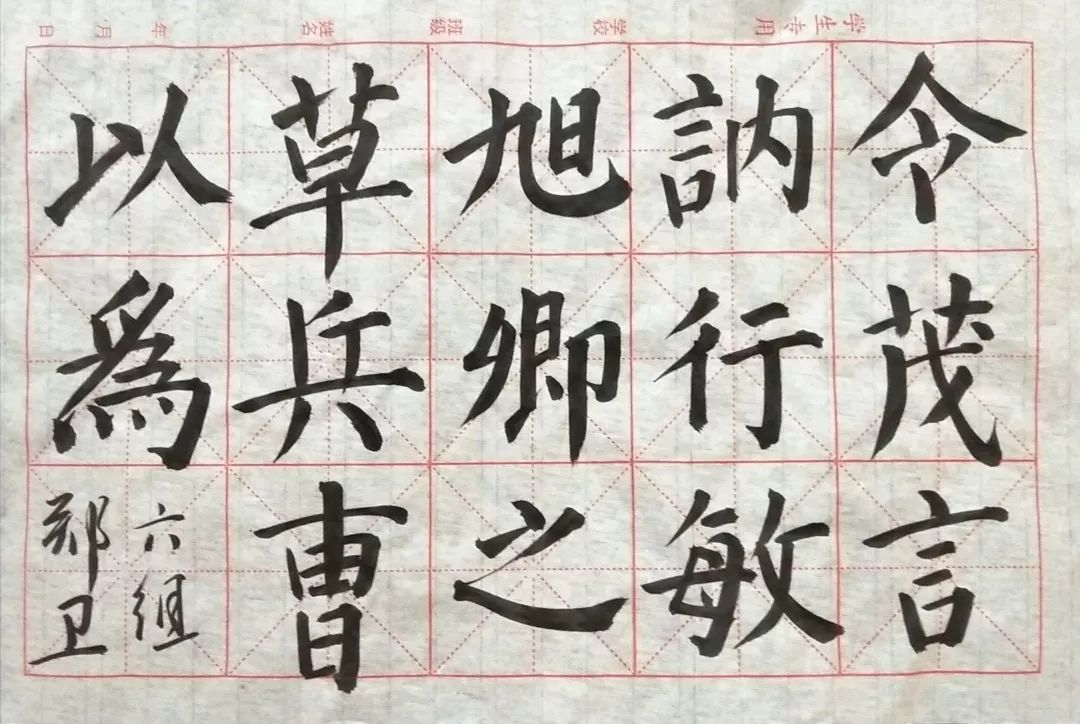 学生专用 学校 班级 姓名 年 月 日
令茂言
訥行敏
旭卿之
草兵曹
以爲
六组
郑卫